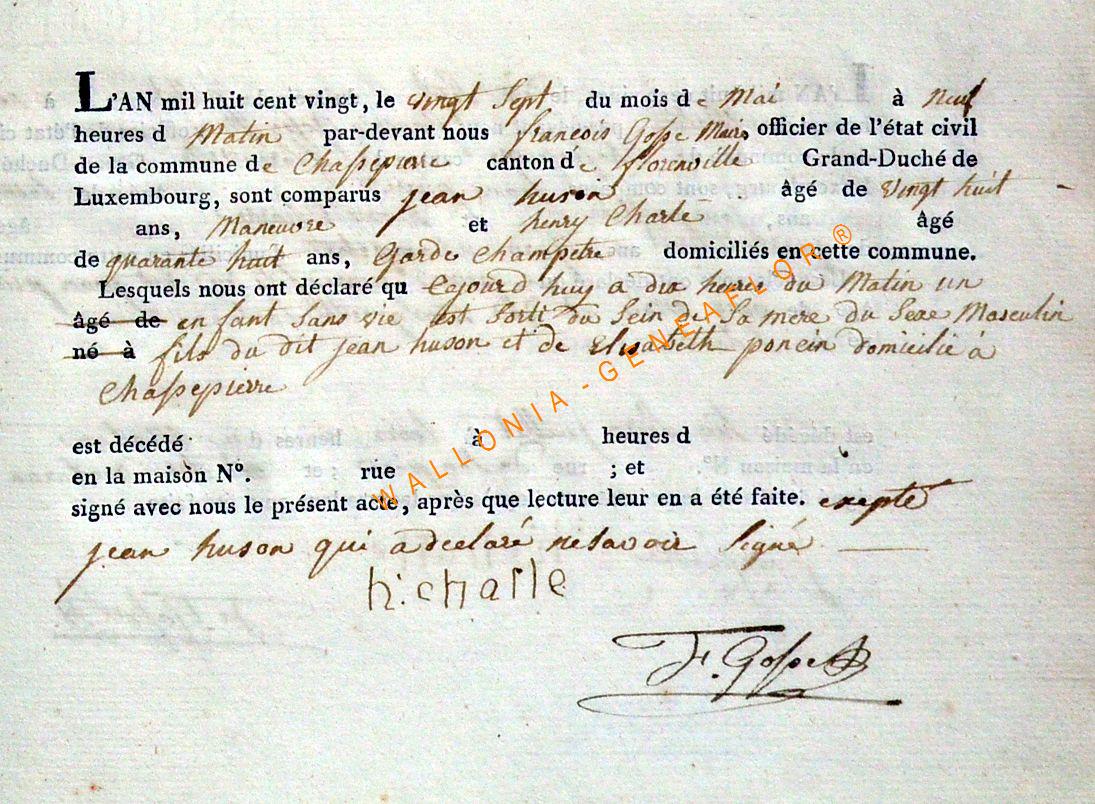 L'AN mil huit cent vingt, le vingt Sept du mois de Mai à Neuf
heures d Matin par-devant nous françois Gosse Maire officier de l'état civil
de la commune de Chassepierre canton de florenville Grand-Duché de
Luxembourg, sont comparus jean huson âgé de vingt huit
ans, Maneuvre et henry Charle âgé
de quarante huit ans, Garde Champetre domiciliés en cette commune.
Lesquels nous ont déclaré qu cejourd huy a dix heures du Matin un
âgé de enfant Sans vie est Sorti du Sein de Sa mere du Sexe Masculin
né à fils du dit jean huson et de Elisabeth poncin domicilié à
Chassepierre
est décédé à heures d
en la maison N°. rue ; et
signé avec nous le présent acte, après que lecture leur en a été faite. exepté
jean huson qui a declaré ne savoir Signé
h: charle
F. Gosse
WALLONIA - GENEAFLOR ®